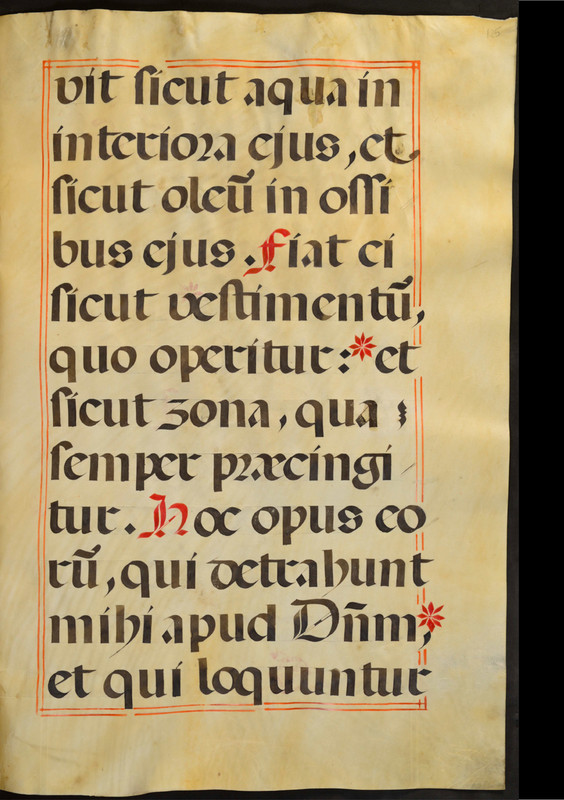 vit ſicut aqua in
interiora ejus, et
ſicut oleū in oſſi
bus ejus. Fiat ei
ſicut veſtimentū,
quo operitur: * et
ſicut zona, qua
ſemper præcingi
tur. Hoc opus eo
rū, qui detrahunt
mihi apud Dñm, *
et qui loquuntur